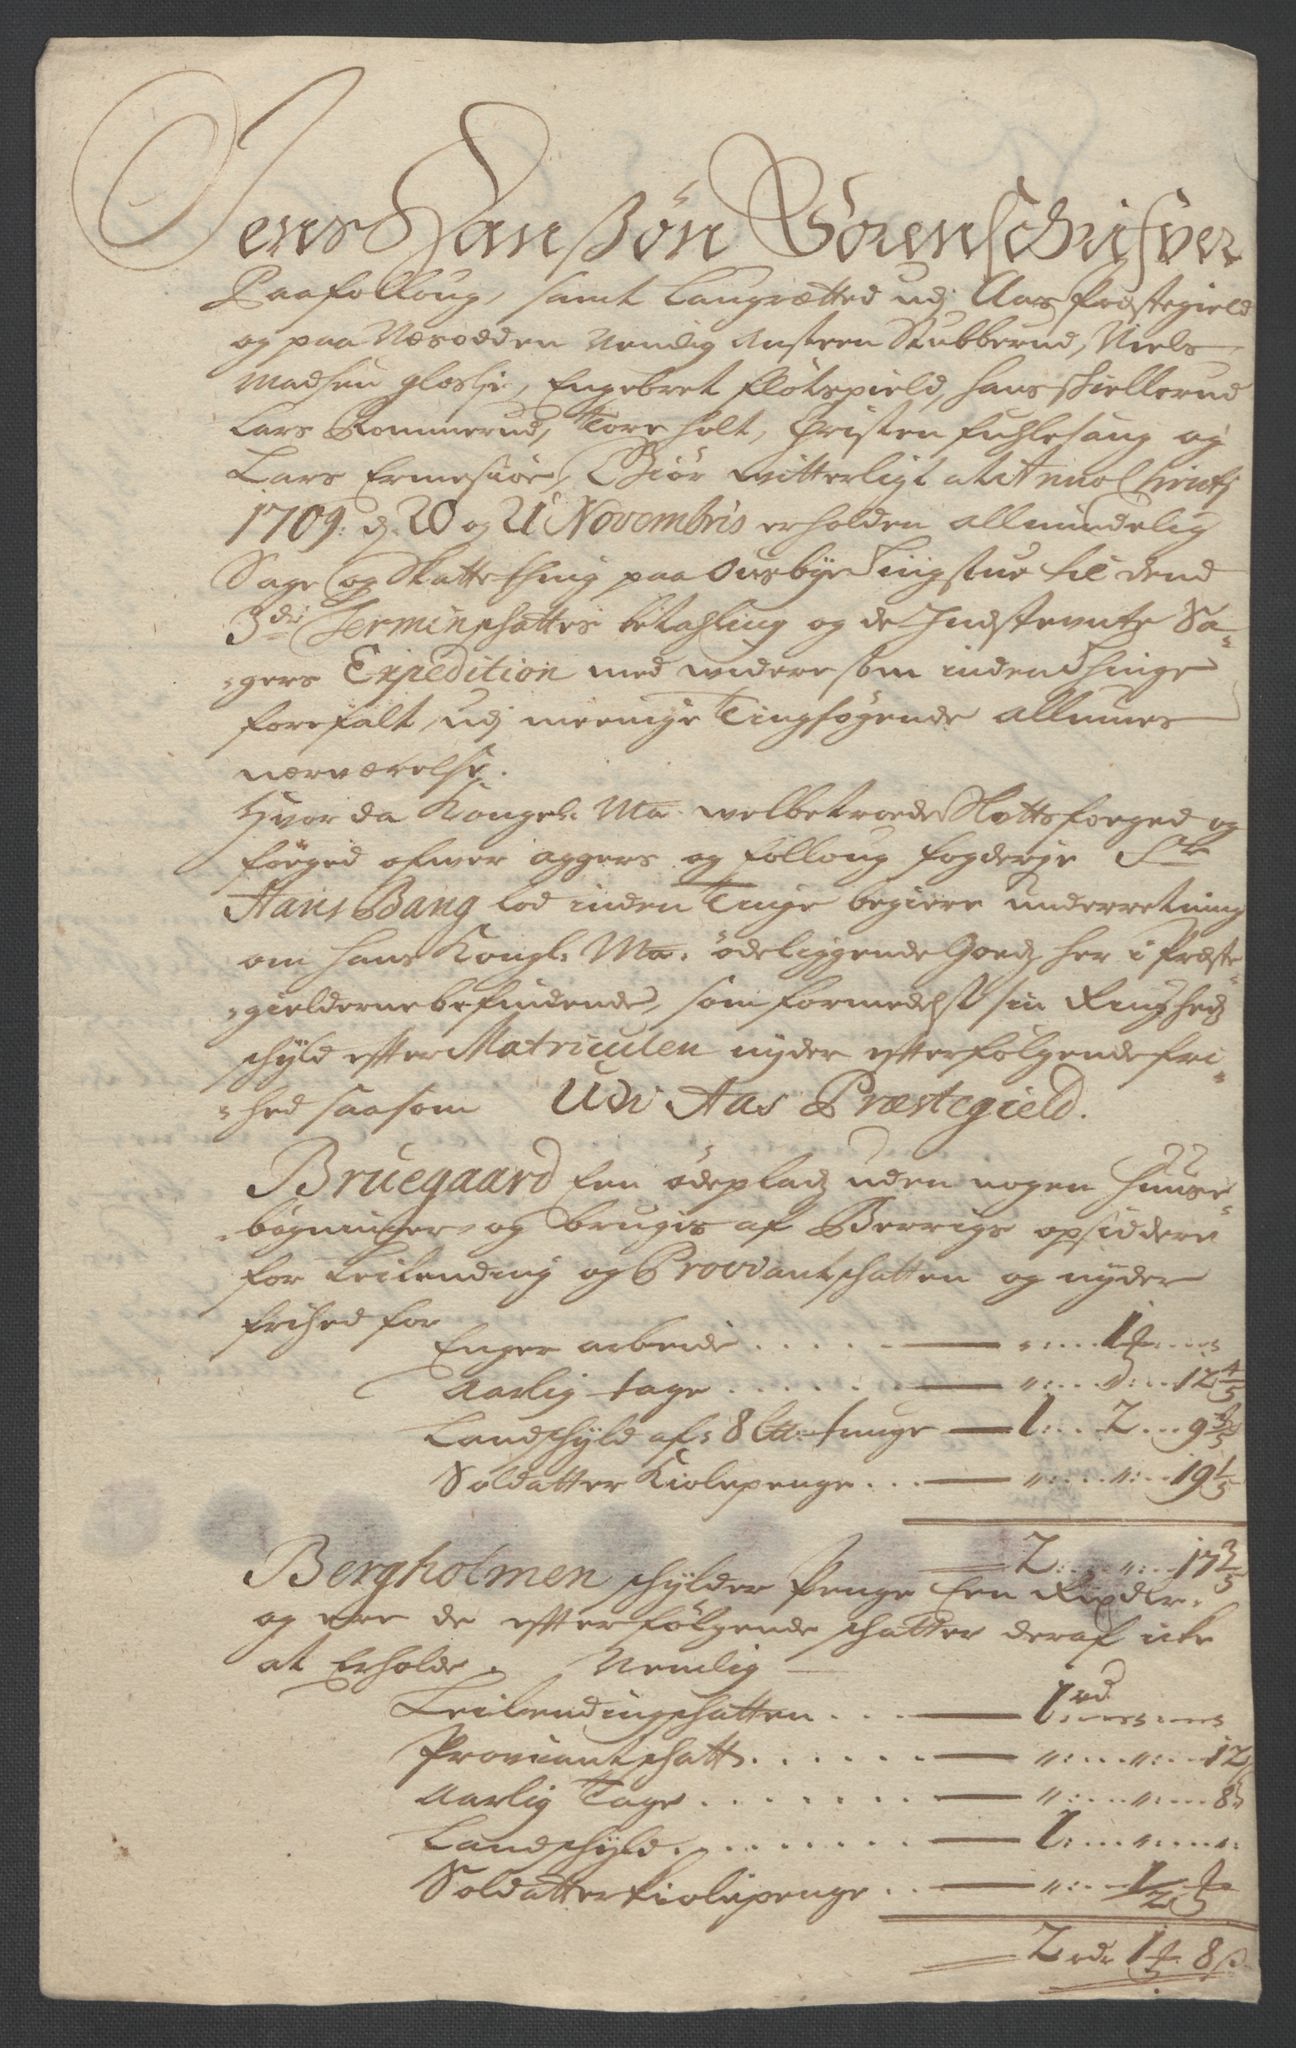 Jens Hanßøn Sorenschrifver
Paa folloug, samt Laugrætted udj Aas Præstegield
og paa Næsodden Nemlig Ansteen Stubberud, Niels
Madsen gloslie, Engebret Fløtspield, Hans Skiellerud
Lars Rommerud, Tore Holt, Christen Fuhlesang og
Lars Ermesiøe, Giør witterligt at Anno Christj
1709: d. 20 og 21 Novembris erholden allmindelig
Sage og Skatte thing paa Ousbye Tingstue til dend
3die Termin schattes betahling og de Indstevnte Sa-
-gers Expedition med widere som inden Thinge
forefalt, udj meenige Tingsøgende allmues
nærværelse.
Hvor da Kongel: Ma. welbetroede Slottsfoeged og
foeged ofwer aggers og follong fogderje Sr
Hans Bang lod inden Tinge begiere underretning
om hans Kongl: Ma. ødeliggende Goedz her i Præste-
-gielderne befindende, som formedelst sin Ringhedz
schyld efter Matriculen nyder efterfølgende fri-
-hed saasom Udi Aas Præstegield.
Bruegaard Een ødepladz uden nogen Huuse-
bøgninger og brugis af Berrigs opsiddere
for Leilending og Proviantschatten og nyder
frihed for
Enger arbeide . . . . . — ":. . . 1 ". . . "
Aarlig tage . . . . . . — ":. . . ":. . . 12 4/5
Landschyld af: 8 Lb: tunge — 1:. . 2. . . 9 3/5
Soldatter Kiolepenge . . . — ":. . . ":. . . 19 1/5
2:. . . ":. . . 17 3/5
Bergholmen schylder Penge Een Rixdlr.
og ere de efterfølgende schatter deraf icke
at Erholde. Nemlig —
Leilendingschatten . . . — 1 rd
Proviantschatt . . . . . . — ":. . . ":. . . 12
Aarlig Tage . . . . . . . — ":. . . ":. . . 8
Landschyld . . . . . . . . — 1:. . . ":. . . ":
Soldatter kiolepenge . . — ":. . . 1/2
2 rdr 1 8 ß